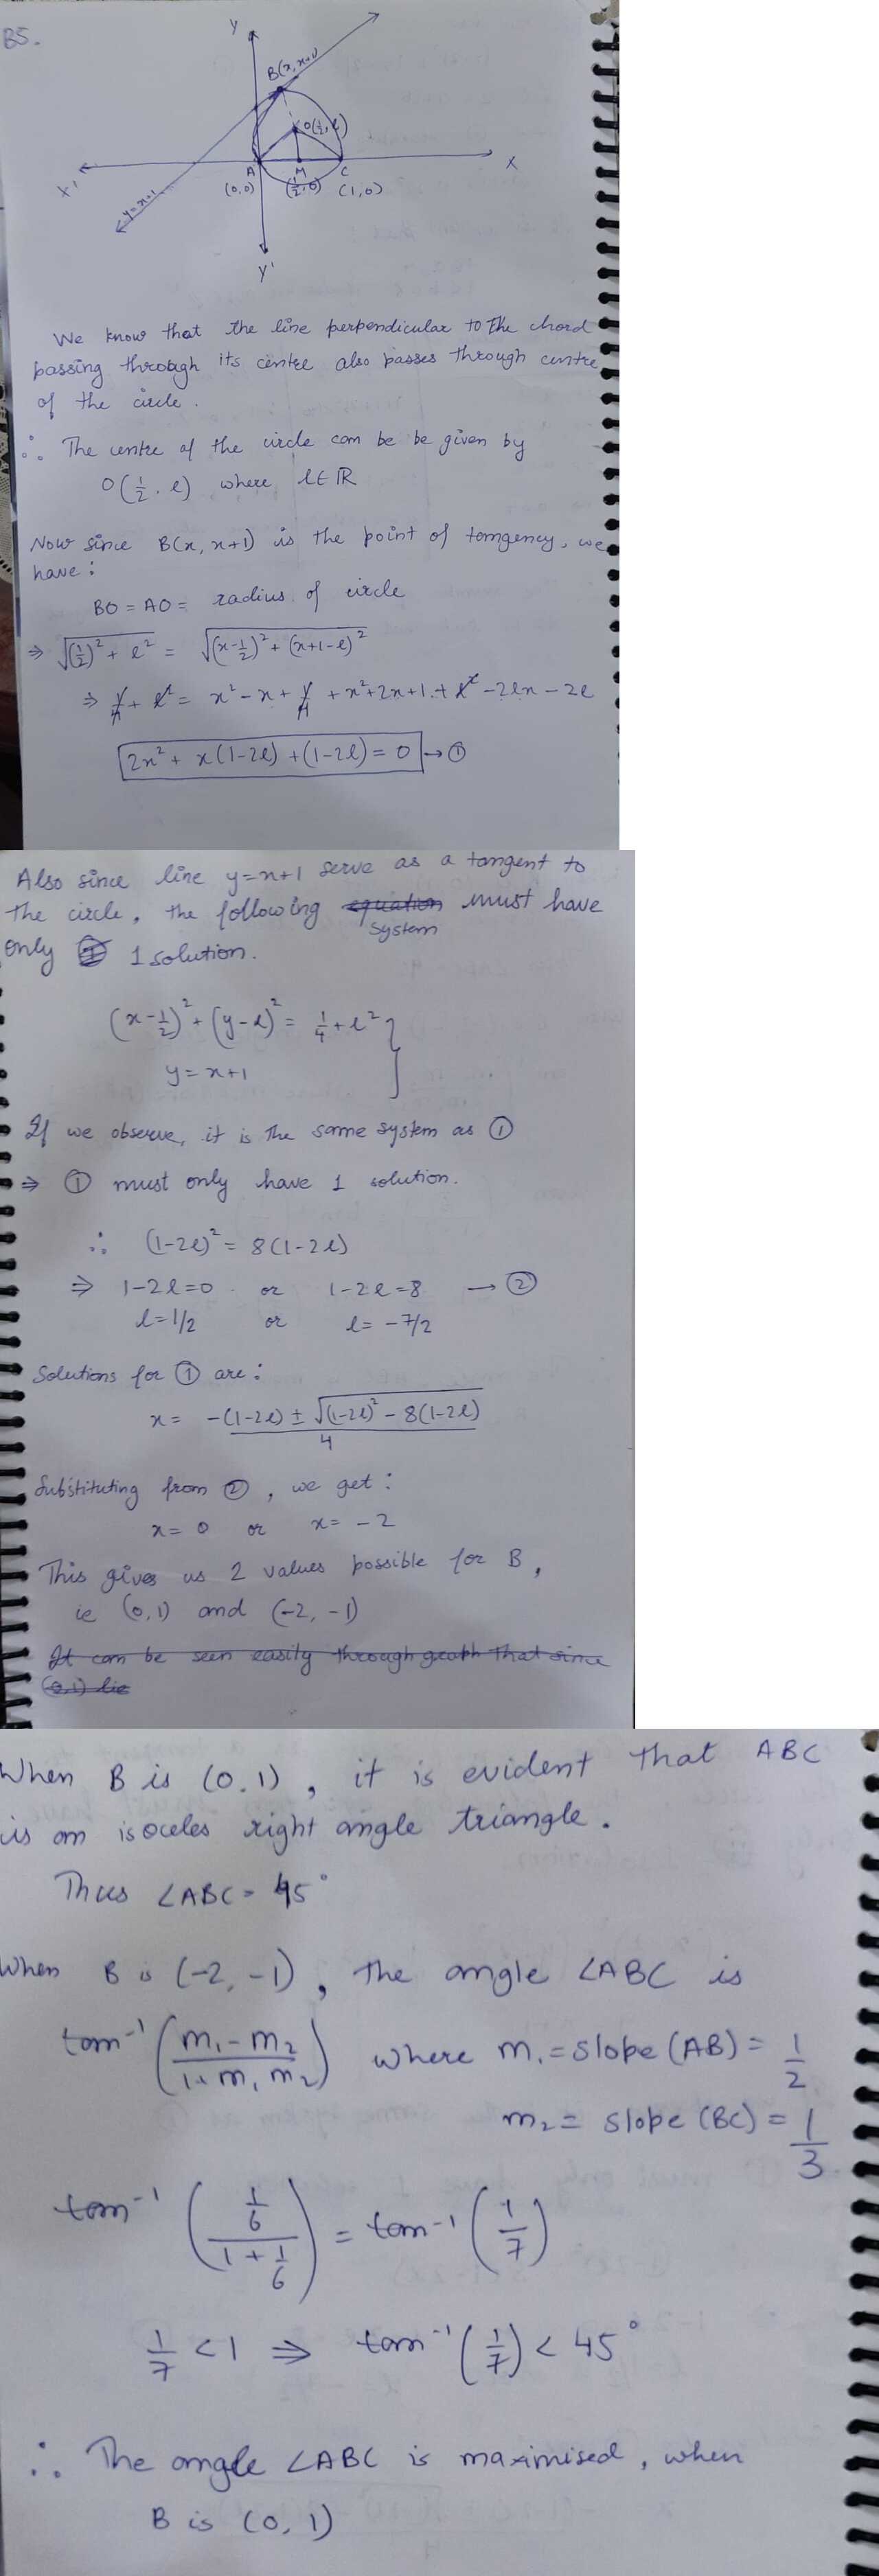 B5.
Y
B(x, x+1)
O(1/2, l)
X'
A
M
C
X
(0,0)
(1/2, 0)
(1,0)
y=x+1
Y'
We know that the line perpendicular to the chord
passing through its centre also passes through centre
of the circle.
∴ The centre of the circle can be be given by
O(1/2, l) where l∈ℝ
Now since B(x, x+1) is the point of tangency, we
have:
BO = AO = radius of circle
⇒ √((1/2)² + l²) = √((x-1/2)² + (x+1-l)²)
⇒ 1/4 + l² = x² - x + 1/4 + x² + 2x + 1 + l² - 2lx - 2l
2x² + x(1-2l) + (1-2l) = 0 → ①
Also since line y=x+1 serve as a tangent to
the circle, the following equation must have
system
only 1 solution.
(x-1/2)² + (y-l)² = 1/4 + l² }
y = x+1
If we observe, it is the same system as ①
⇒ ① must only have 1 solution.
∴ (1-2l)² = 8(1-2l)
⇒ 1-2l=0 or 1-2l=8 → ②
l=1/2 or l= -7/2
Solutions for ① are:
x = (-(1-2l) ± √((1-2l)² - 8(1-2l)))/4
Substituting from ②, we get:
x = 0 or x = -2
This gives us 2 values possible for B,
ie (0,1) and (-2,-1)
It can be seen easily through graph that since
(0,1) lie
When B is (0,1), it is evident that ABC
is an isoceles right angle triangle.
Thus ∠ABC = 45°
When B is (-2,-1), the angle ∠ABC is
tan⁻¹((m₁-m₂)/(1+m₁m₂)) where m₁ = slope(AB) = 1/2
m₂ = slope(BC) = 1/3
tan⁻¹((1/6)/(1+1/6)) = tan⁻¹(1/7)
1/7 < 1 ⇒ tan⁻¹(1/7) < 45°
∴ The angle ∠ABC is maximised, when
B is (0,1)